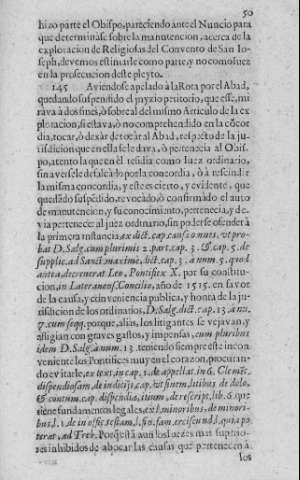 50
hizo parte el Obispo, pareciendo ante el Nuncio para
que determinasse sobre la manutencion, acerca de la
exploracion de Religiosas del Convento de San Io-
seph, devemos estimarle como parte, y no como Iuez
en la prosecucion deste pleyto.
145 Aviendose apelado à la Rota por el Abad,
quedando suspendido el juyzio petitorio, que esse, mi-
rava à dos fines, ò sobre al del mismo Articulo de la ex
ploracion, si estava, ò no comprehendido en la cõcor
dia, tocar, ò dexar de tocar al Abad, respecto de la ju-
risdicion que en ella se le dava, ò pertenecia al Obis-
po, atento la que en èl residia como Iuez ordinario,
sin aversele desfalcado por la concordia, ò à rescindir
la misma concordia, y este es cierto, y evidente, que
quedãdo suspẽdido, revocado, ò confirmado el auto
de manutencion, y su conocimiento, pertenecia, y de-
via pertenecer al juez ordinario, sin poderse ofender à
la primera instancia, ex dict. cap. causa omnes, vt pro-
bat D. Salg. cum plurimis 2. part. cap. 3. & cap. 5. de
supplic. ad Sanct. maxime, dict. cap. 3. à num. 5. quod
antea decreverat Leo, Pontifex X. por su constitu-
cion, in Lateranens. Concilio, año de 1515. en favor
de la causa, y conveniencia publica, y honra de la ju-
risdicion de los ordinarios, D. Salg. dict. cap. 13. à nu.
7. cum seqq. porque, aliàs, los litigantes se vejavan, y
afligian con graves gastos, y impensas, cum pluribus
idem D. Salg. à num. 13. teniendo siempre este incon-
veniente los Pontifices muy en el corazon, procuran-
do evitarle, ex text. in cap. 1. de appellat. in 6. Clemẽt.
dispendiosam, de indicijs, cap. vt finem, litibus, de dolo,
& contum. cap. dispendia, iterum, de rescript. lib. 6. que
tiene fundamentos legales, ex l. minoribus, de minori-
bus, l. 1. de in offic. testam. l. si
terat, ad Treb. Porque si aun los Iuezes mas superio-
res inhibidos de abocar las causas que pertenecen à
los